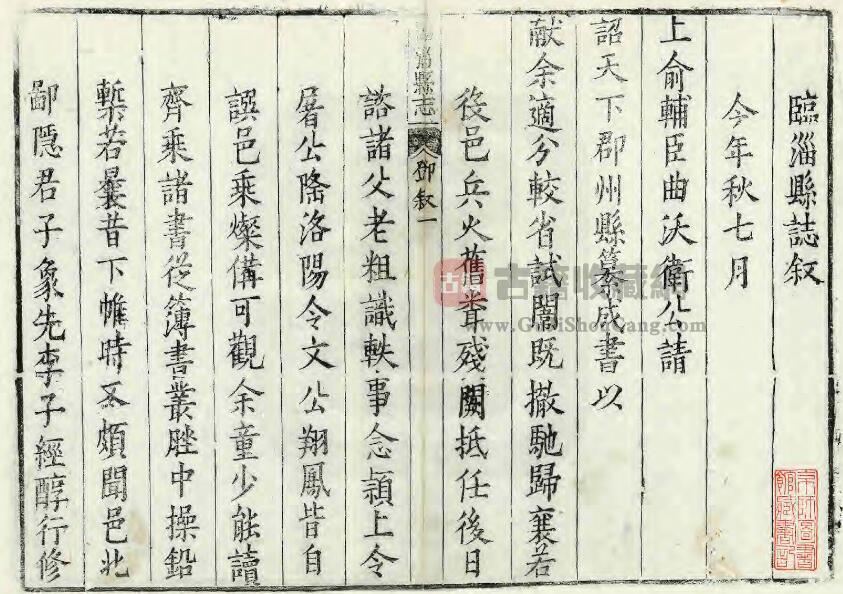 臨淄縣誌叙
今年秋七月
上俞輔臣曲沃衛公請
詔天下郡州縣纂成書以
献余適分較省試闈既撤馳歸襄若
役邑兵火舊聞殘闕抵任後日
淄縣志
御叙一
諮諸父老粗識軼事念潁上令
屠公隆洛陽令文公翔鳳皆自
譔邑乘燦備可觀余童少能讀
齊乘諸書從簿書叢脞中操鉛
槧若曩昔下帷時不頗聞邑北
鄙隱君子象先李子經醇行修
古籍收藏網
www.GuJiShouCang.com